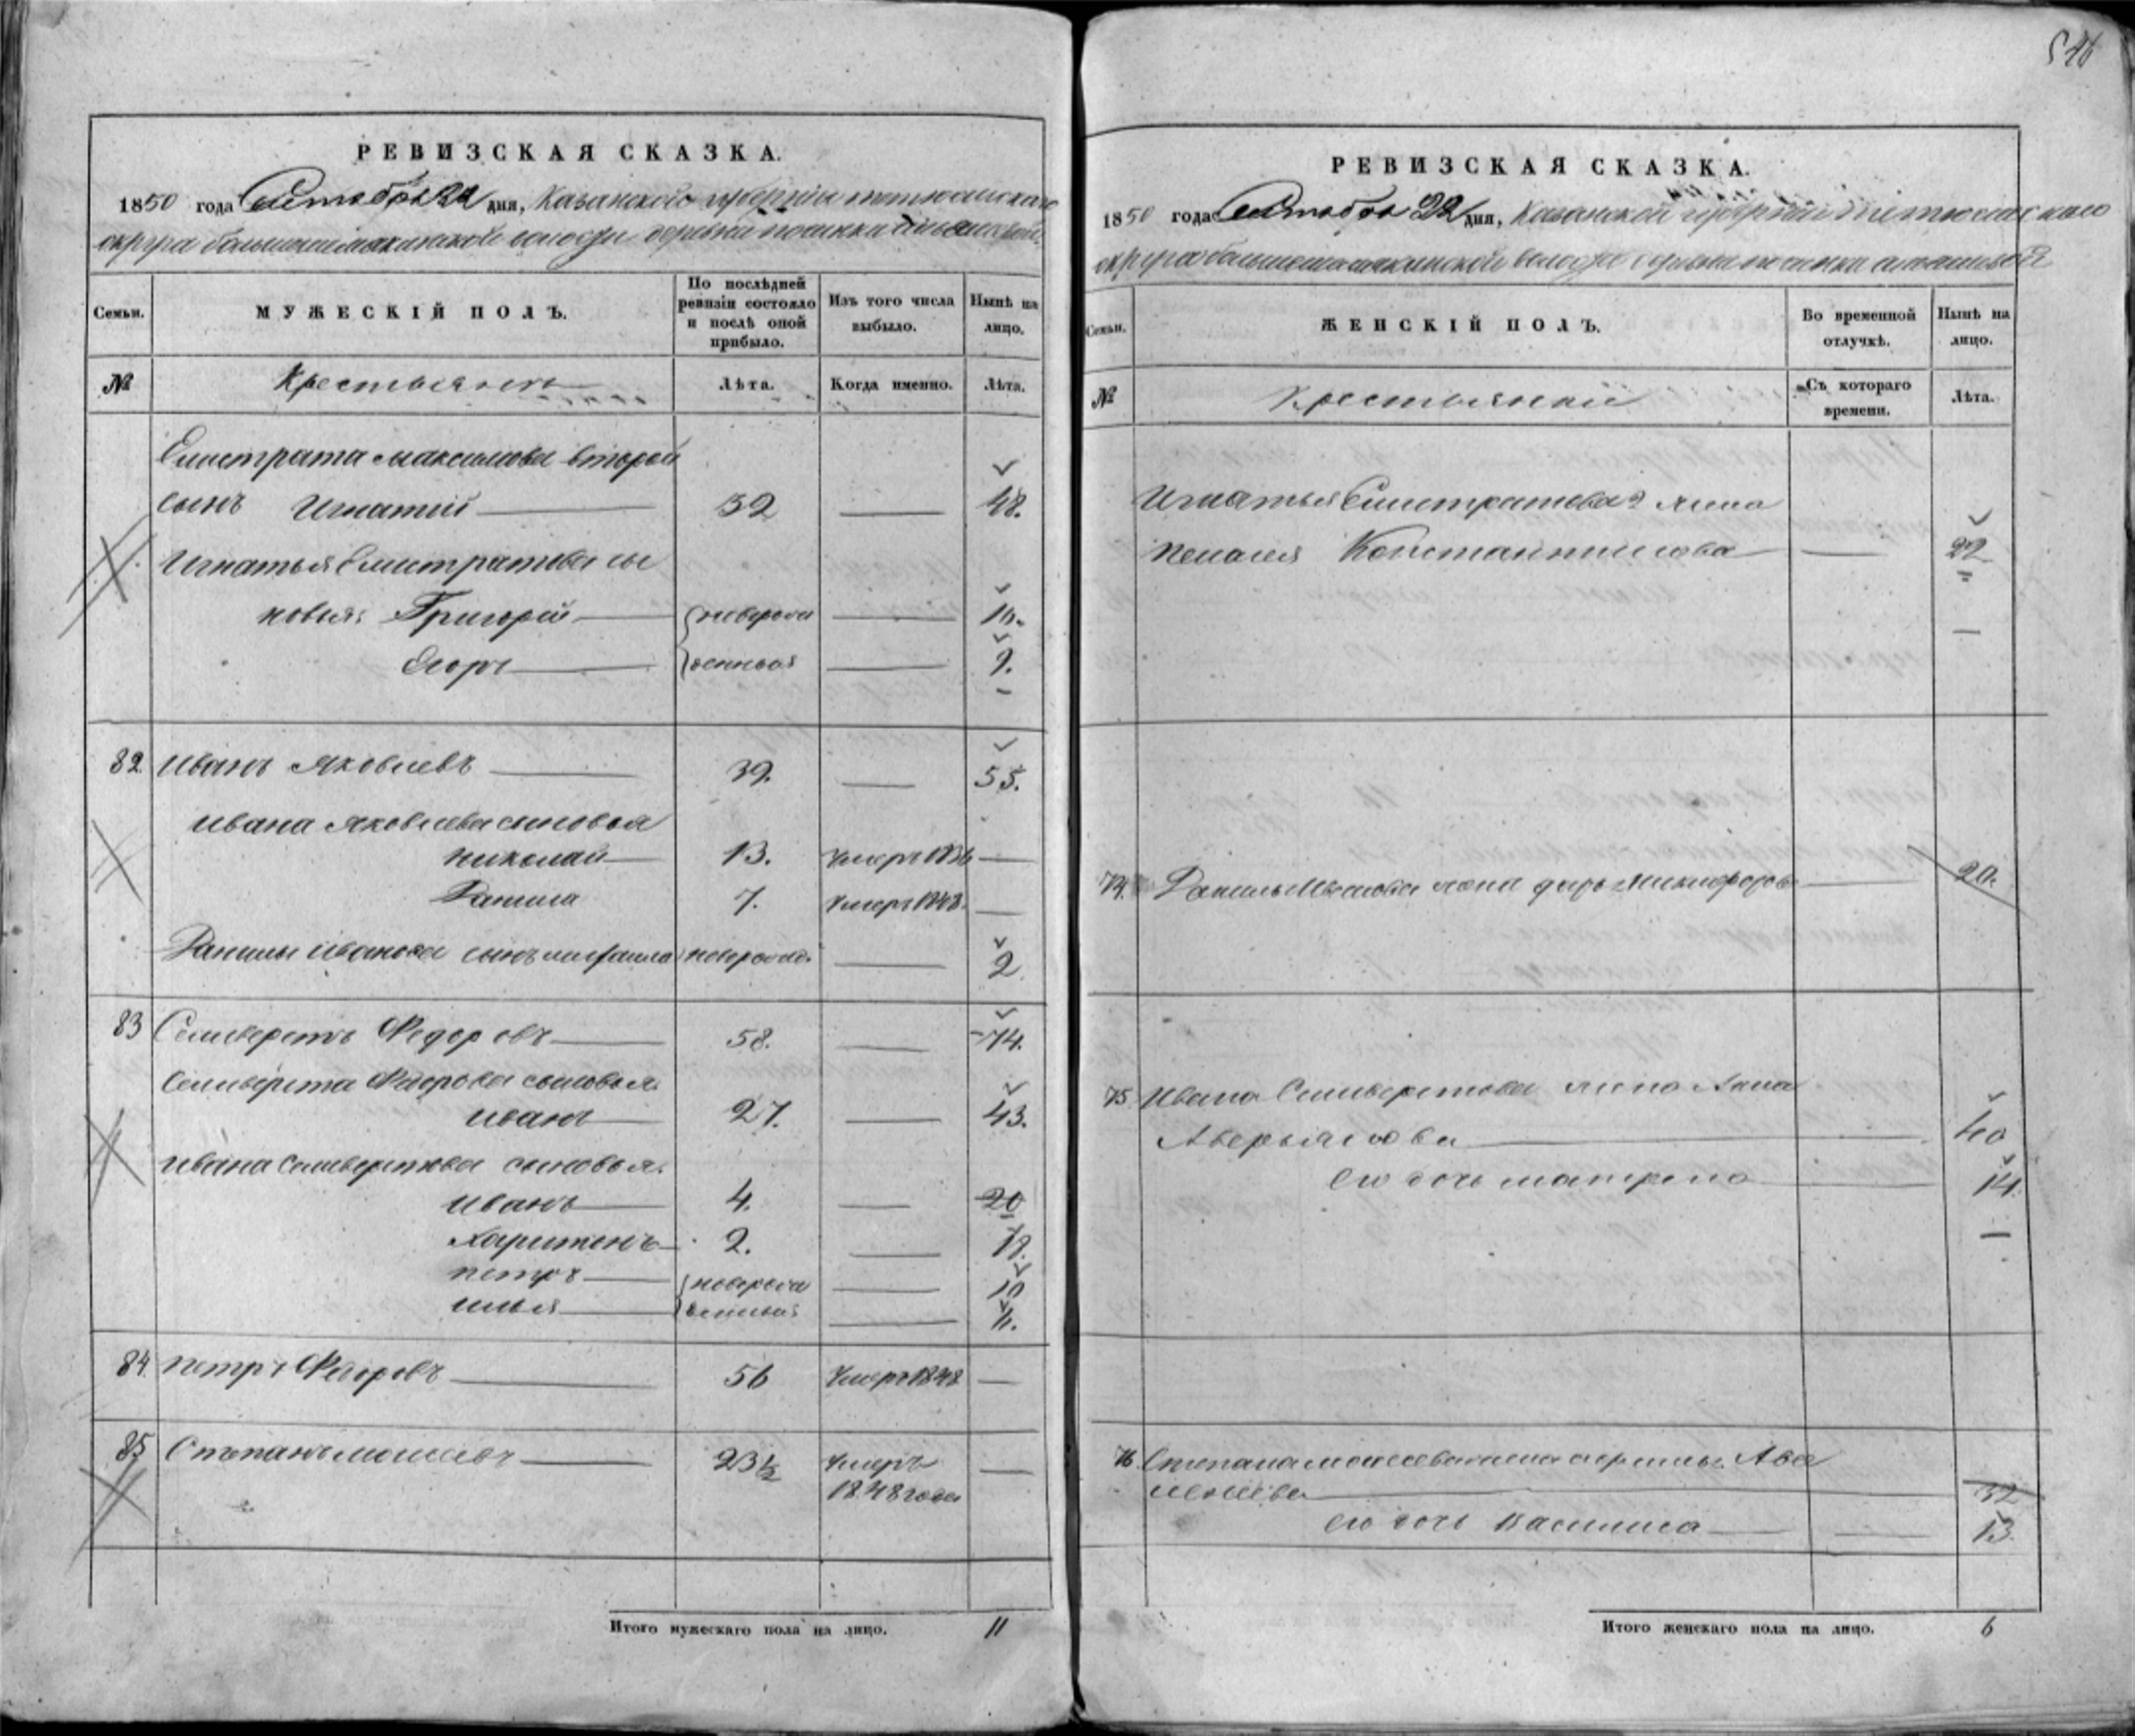 546
РЕВИЗСКАЯ СКАЗКА.
1850 года Сентября 22 дня, Казанской губернии тетюшскаго
округа большешемякинской волости деревни
Семьи.
МУЖЕСКІЙ ПОЛЪ.
По послѣдней ревизіи состояло и послѣ оной прибыло.
Изъ того числа выбыло.
Нынѣ на лицо.
№
Крестьянъ
Лѣта.
Когда именно.
Лѣта.
Елистрата Максимова второй
сынъ Игнатій 32 48.
Игнатья Елистратова сы
новья: Григорій новорож 10.
Егоръ денныя 9.
82. Иванъ Яковлевъ 39. 55.
Ивана Яковлева сыновья
Николай 13. Умеръ 1836
Данила 7. Умеръ 1848.
Данилы Иванова сынъ новорожд. 2.
83 Селиверстъ Федоровъ 58. 74.
Селиверста Федорова сыновья
Иванъ 27. 43.
Ивана Селиверстова сыновья.
Иванъ 4. 20
Харитонъ 2. 18.
Петръ новорож 10
Илья денныя
84. Петръ Федоровъ 56 Умеръ 1848
85 Степанъ Моисеевъ 23½ Умеръ
1848 года
Итого мужескаго пола на лицо. 11
РЕВИЗСКАЯ СКАЗКА.
1850 года Сентября 22 дня, Казанской губерніи Тетюшскаго
округа большешемякинской волости деревни
Семьи.
ЖЕНСКІЙ ПОЛЪ.
Во временной отлучкѣ.
Нынѣ на лицо.
№
Крестьянки
Съ котораго времени.
Лѣта.
Игнатья Елистратова 2 жена
Пелагея Константинова
74. Данилы Иванова жена Никифорова 20.
75. Ивана Селиверстова жена Анна
Аверьянова 40
его дочь Матрена 14.
76. Степана Моисеева жена Ав
32
его дочь Василиса 13.
Итого женскаго пола на лицо. 6